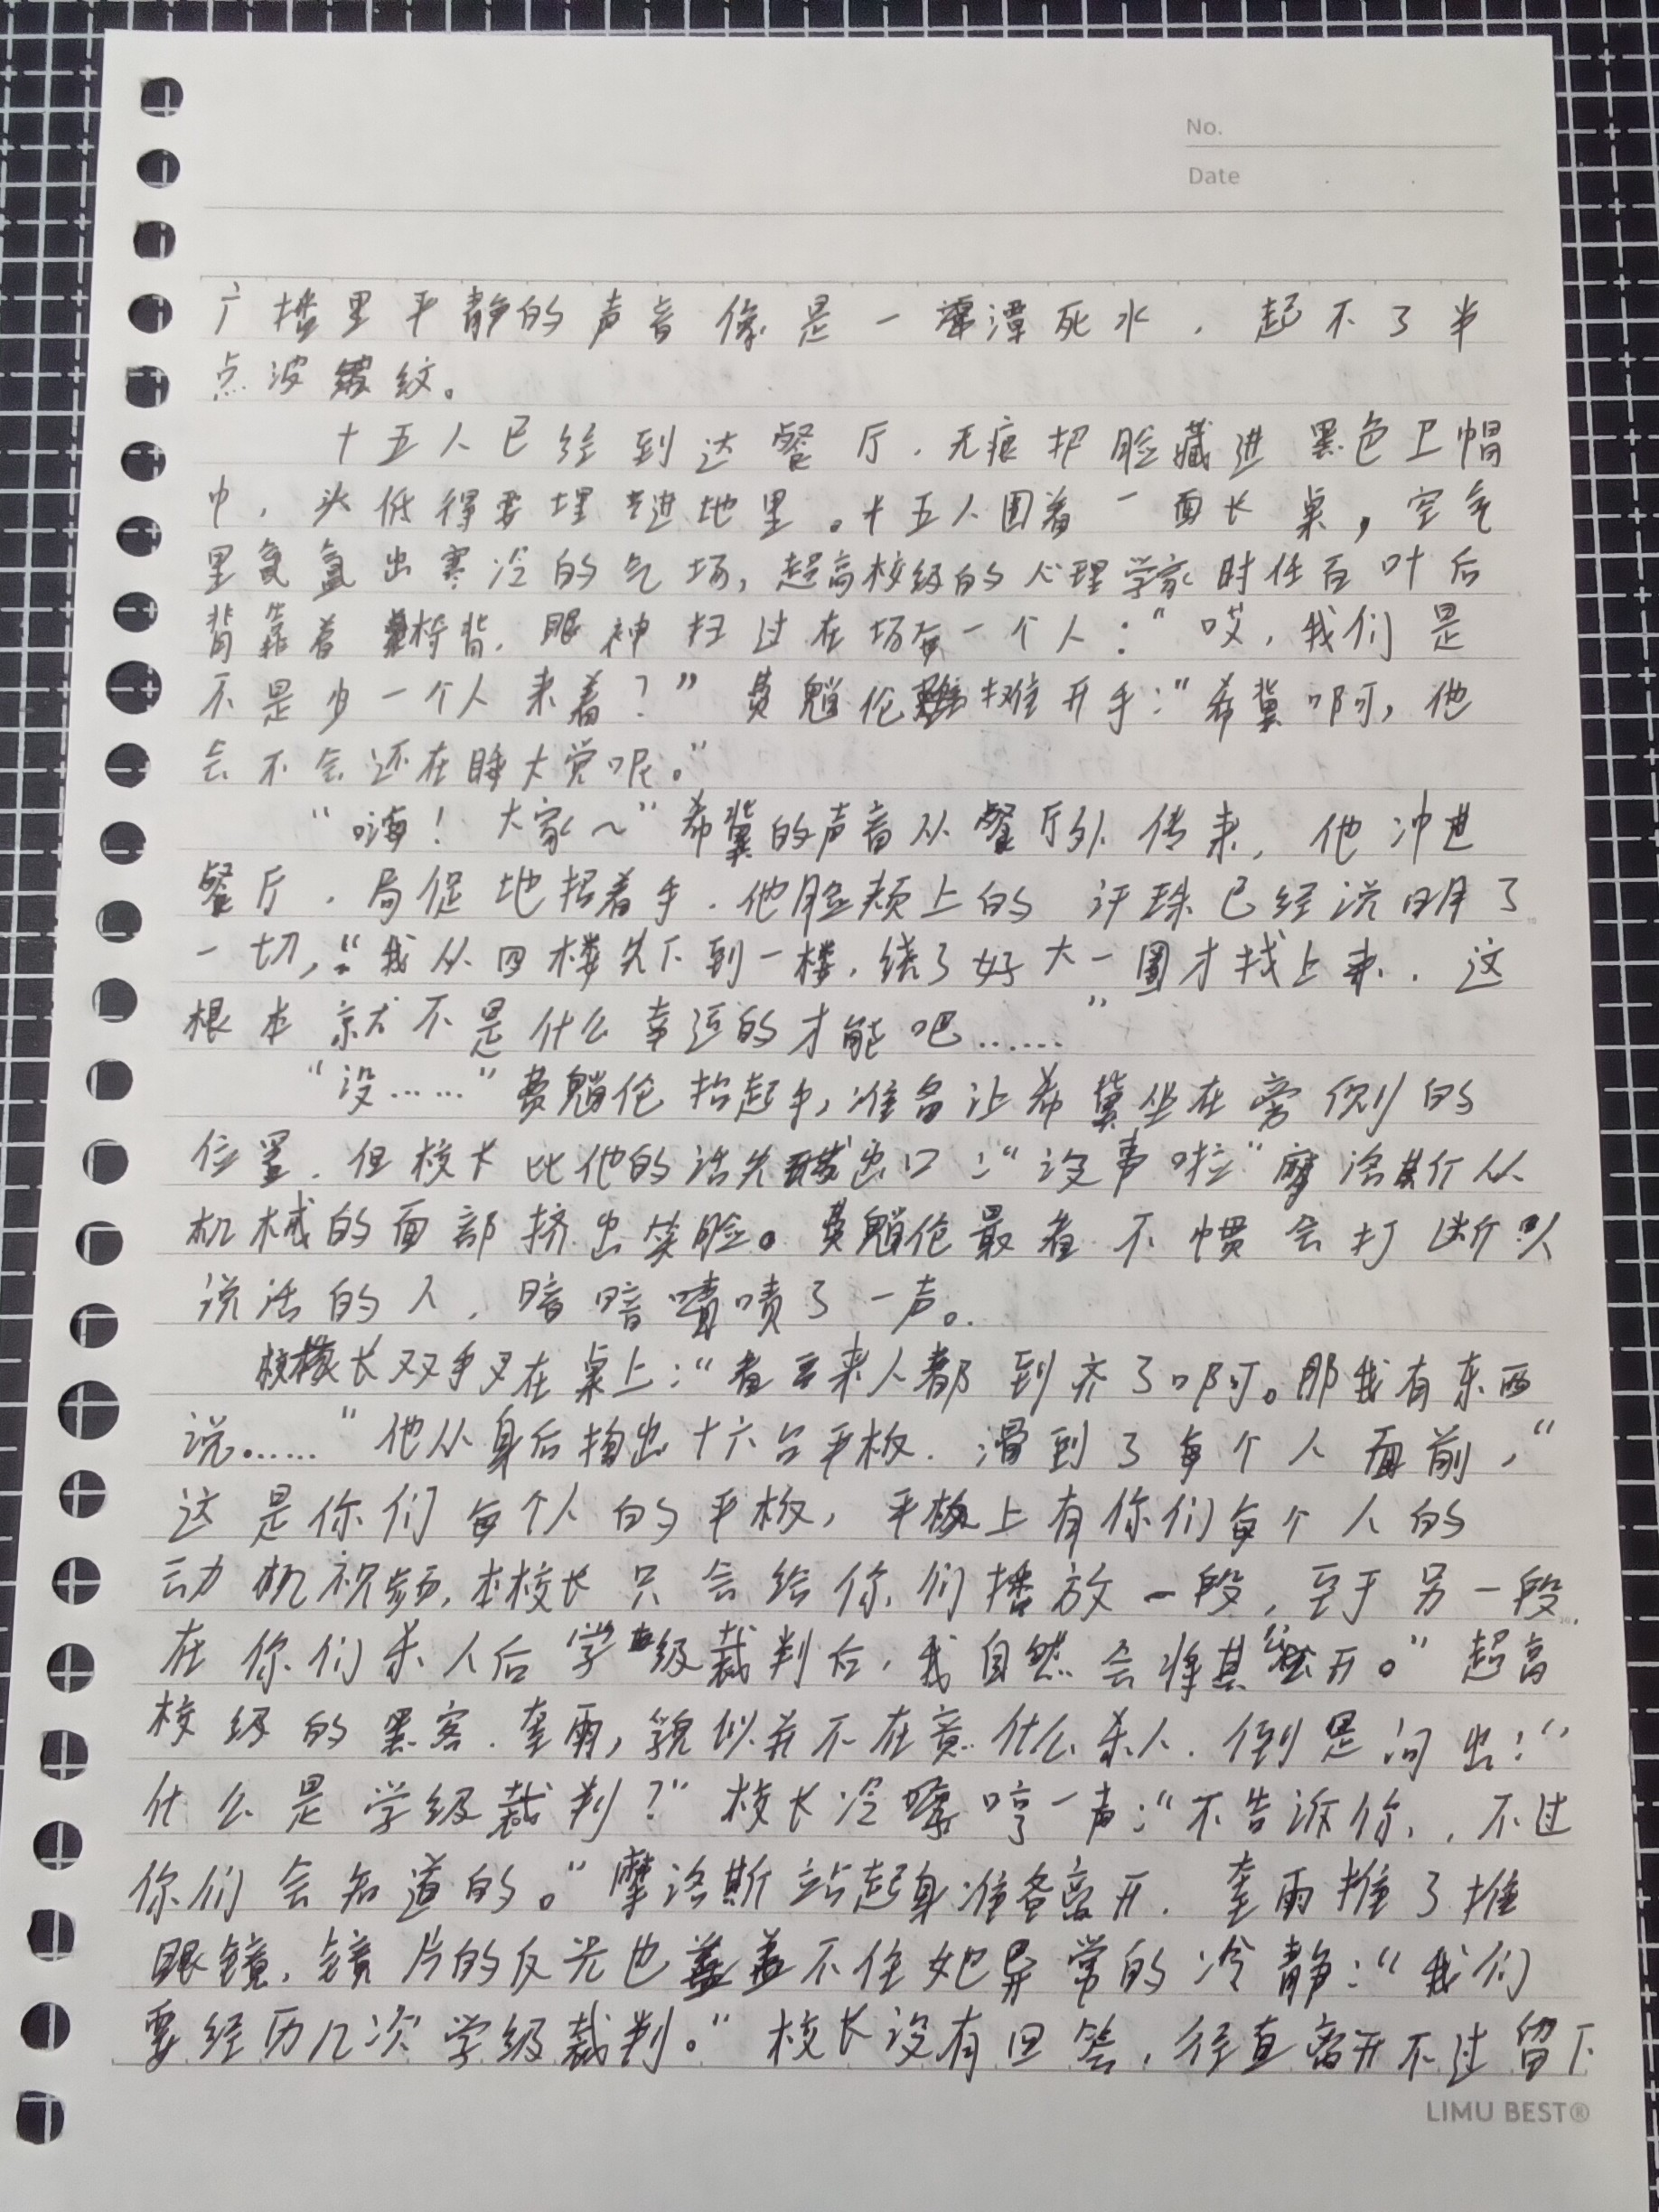 No.
Date
广播里平静的声音像是一潭死水，起不了半
点波纹。
十五人已经到达餐厅，无痕把脸藏进黑色卫帽
中，头低得要埋进地里。十五人围着一面长桌，空气
里氤氲出寒冷的气场，超高校级的心理学家时任百叶后
背靠着椅背，眼神扫过在场每一个人：“哎，我们是
不是少一个人来着？”费魈伦摊开手：“希冀啊，他
会不会还在睡大觉呢。”
“嗨！大家～”希冀的声音从餐厅外传来，他冲进
餐厅，局促地招着手，他脸颊上的汗珠已经说明了
一切，“我从四楼先下到一楼，绕了好大一圈才找上来，这
根本就不是什么幸运的才能吧……”
“没……”费魈伦抬起手，准备让希冀坐在旁侧的
位置，但校长比他的话先蹦出口：“没事啦”摩洛斯从
机械的面部挤出笑脸。费魈伦最看不惯会打断别人
说话的人，暗暗啧啧了一声。
校长双手叉在桌上：“看来人都到齐了啊。那我有东西
说……”他从身后掏出十六台平板，滑到了每个人面前，“
这是你们每个人的平板，平板上有你们每个人的
动机视频，本校长只会给你们播放一段，至于另一段，
在你们杀人后学级裁判后，我自然会将其公开。”超高
校级的黑客，奎雨，貌似并不在意什么杀人，倒是问出：“
什么是学级裁判？”校长冷哼一声：“不告诉你，，不过
你们会知道的。”摩洛斯站起身准备离开，奎雨推了推
眼镜，镜片的反光也盖不住她异常的冷静：“我们
要经历几次学级裁判。”校长没有回答，径直离开不过留下
LIMU BEST®